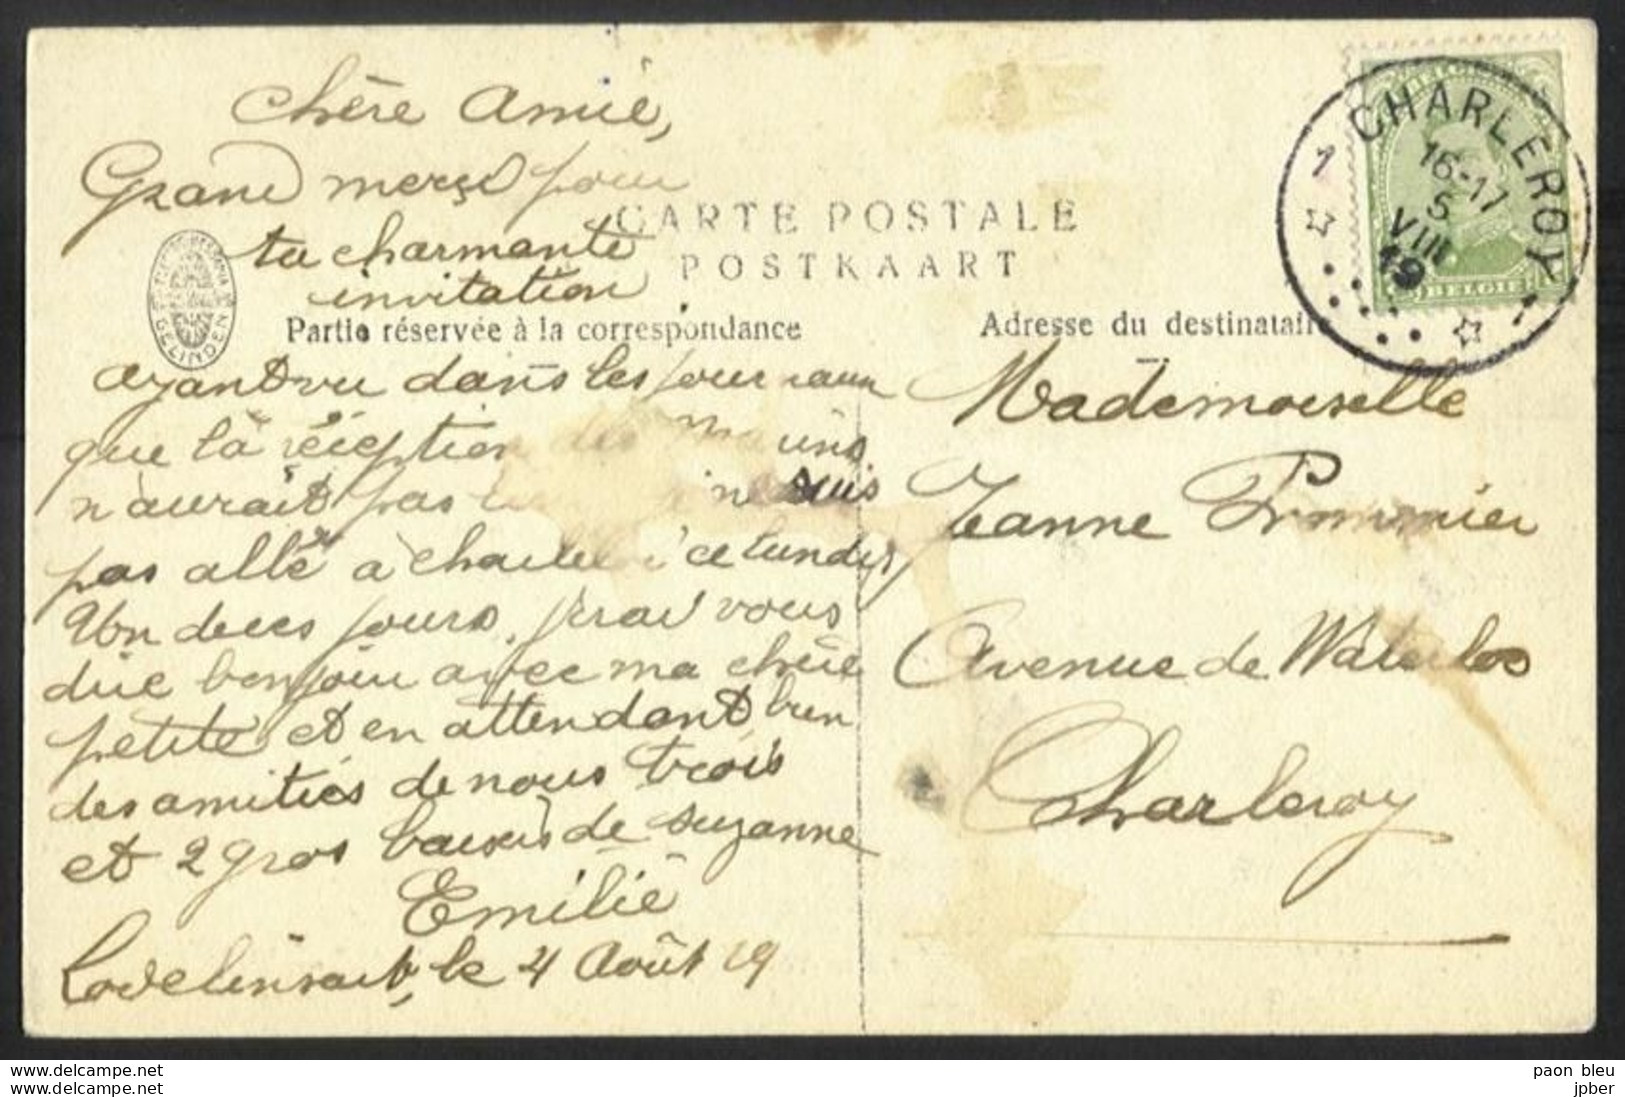 Chère Amie,
Grand merci pour
ta charmante
invitation
CARTE POSTALE
POSTKAART
GELINDEN
Partie réservée à la correspondance
ayant vu dans les journaux
que la réception des
n'aurait pas suis
pas allé à Charleroi ce lundi,
Un de ces jours, j'irai vous
dire bonjour avec ma chère
petite et en attendant bien
des amitiés de nous trois
et 2 gros baisers de Suzanne
Emilie
Lodelinsart, le 4 Août 19
CHARLEROY
1 1
16-17
5
VIII
19
BELGIE
Adresse du destinataire
Mademoiselle
Jeanne Prommier
Avenue de Waterloo
Charleroy
delcampe.net
paon bleu
jpber